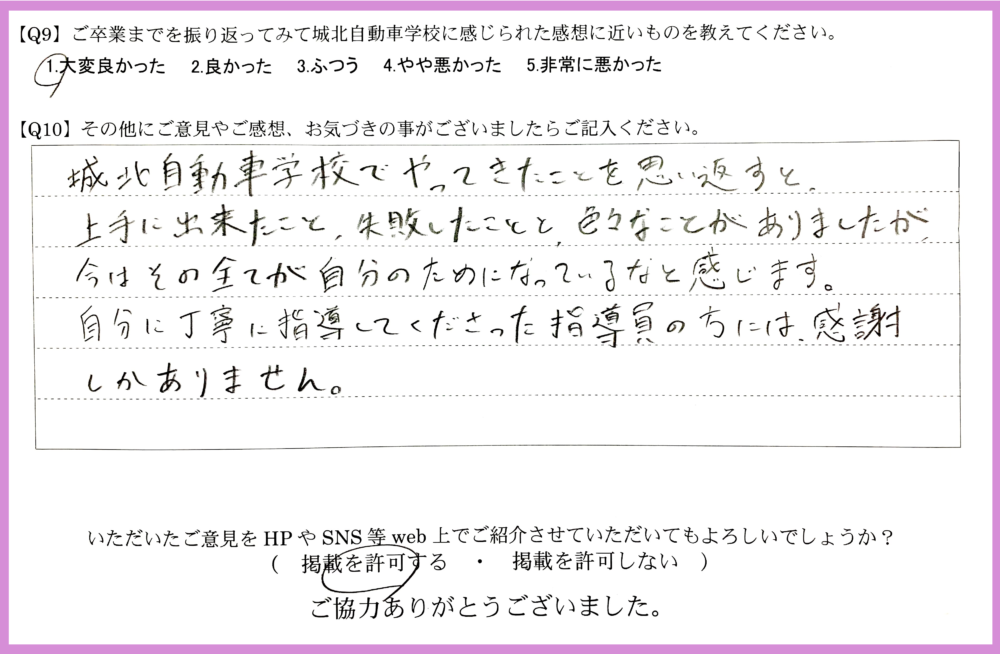 【Q9】ご卒業までを振り返ってみて城北自動車学校に感じられた感想に近いものを教えてください。
1.大変良かった 2.良かった 3.ふつう 4.やや悪かった 5.非常に悪かった
【Q10】その他にご意見やご感想、お気づきの事がございましたらご記入ください。
城北自動車学校でやってきたことを思い返すと、
上手に出来たこと、失敗したことと、色々なことがありましたが、
今はその全てが自分のためになっているなと感じます。
自分に丁寧に指導してくださった指導員の方には、感謝
しかありません。
いただいたご意見をHPやSNS等web上でご紹介させていただいてもよろしいでしょうか？
( 掲載を許可する ・ 掲載を許可しない )
ご協力ありがとうございました。